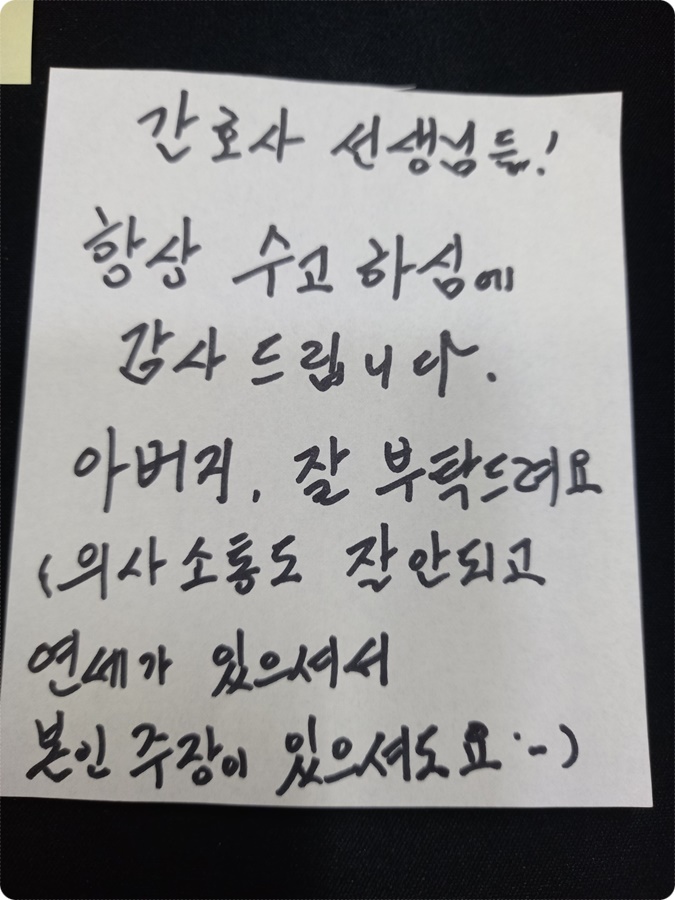 간호사 선생님들!
항상 수고하심에
감사드립니다.
아버지, 잘 부탁드려요
(의사소통도 잘안되고
연세가 있으셔서
본인 주장이 있으셔도요··-)